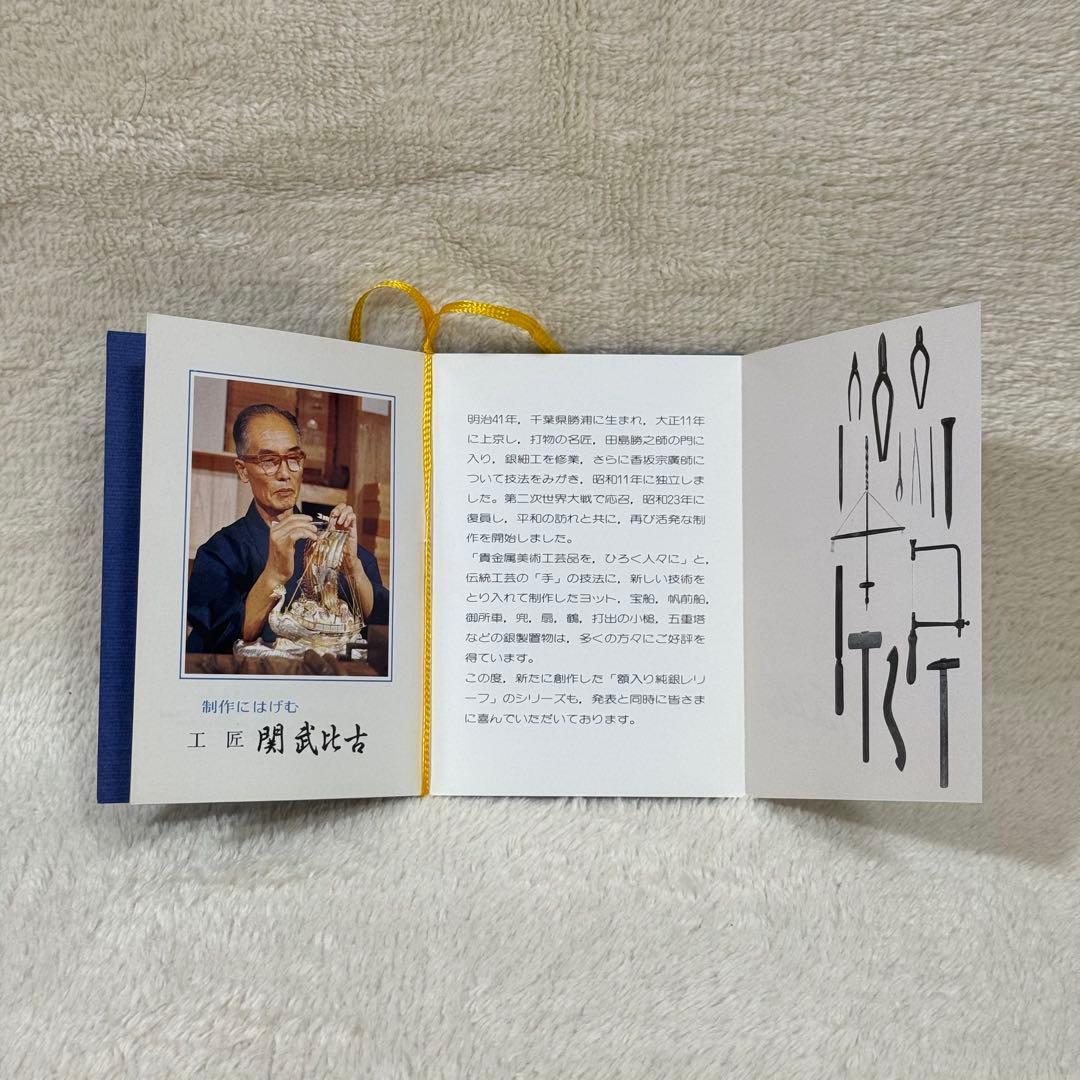 制作にはげむ
工 匠 関 武比古
明治41年，千葉県勝浦に生まれ，大正11年
に上京し，打物の名匠，田島勝之師の門に
入り，銀細工を修業，さらに香坂宗廣師に
ついて技法をみがき，昭和11年に独立しま
した。第二次世界大戦で応召，昭和23年に
復員し，平和の訪れと共に，再び活発な制
作を開始しました。
「貴金属美術工芸品を，ひろく人々に」と，
伝統工芸の「手」の技法に，新しい技術を
とり入れて制作したヨット，宝船，帆前船，
御所車，兜，扇，鶴，打出の小槌，五重塔
などの銀製置物は，多くの方々にご好評を
得ています。
この度，新たに創作した「額入り純銀レリ
ーフ」のシリーズも，発表と同時に皆さま
に喜んでいただいております。